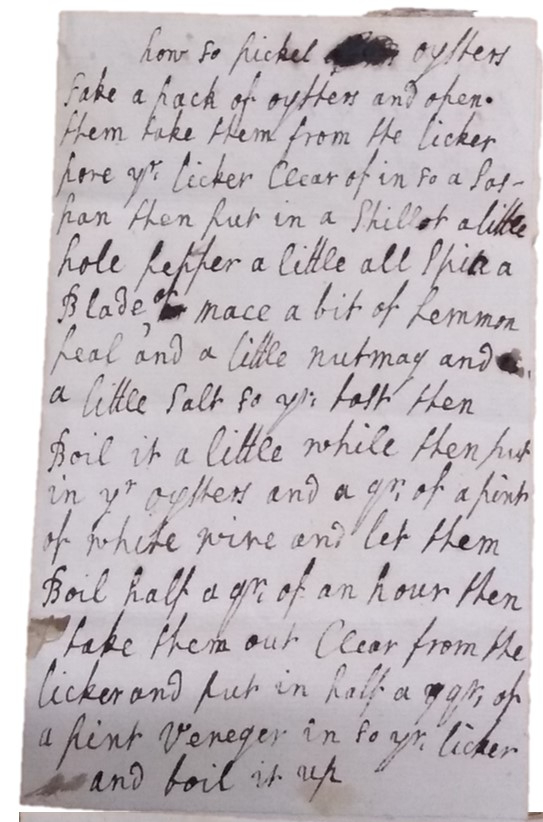 how to pickel oysters
take a pack of oysters and open
them take them from the licker
pore yr: licker Clear of in to a Sos-
pan then put in a Shillot a little
hole pepper a little all Spice a
Blade of mace a bit of Lemmon
peal and a little nutmag and
a little Salt to yr: tast then
Boil it a little while then put
in yr oysters and a qr: of a pint
of white wine and let them
Boil half a qr: of an hour then
take them out Clear from the
licker and put in half a qr: of
a pint Veneger in to yr: licker
and boil it up